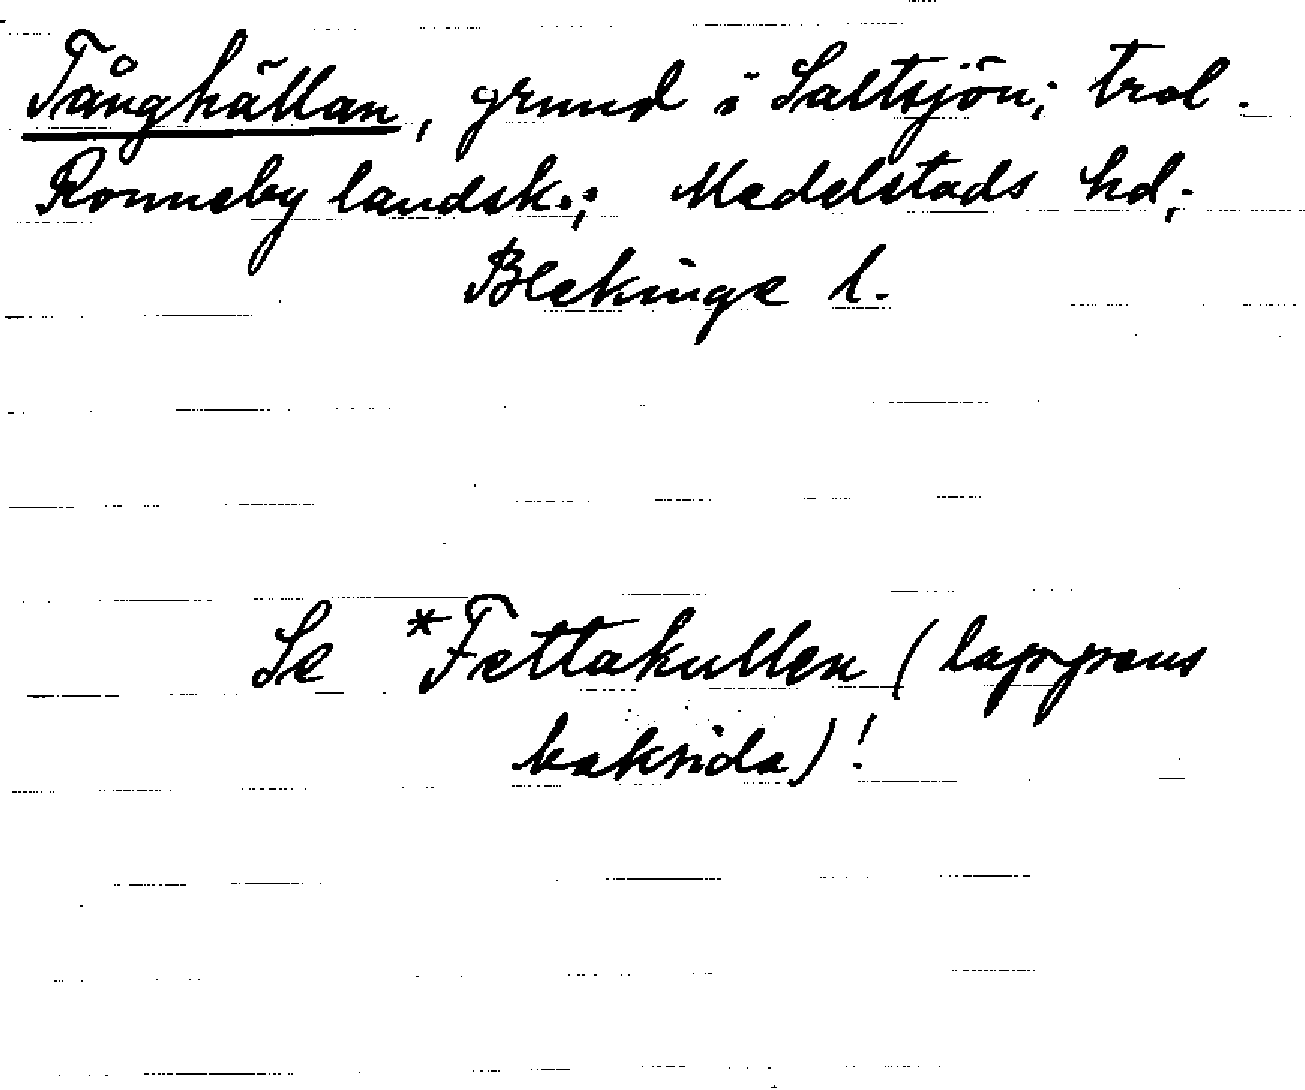 Tånghällan, grund i Saltsjön; trol.
Ronneby landsk.; Medelstads hd;
Blekinge l.
Se *Fettakullen (lappens
baksida)!